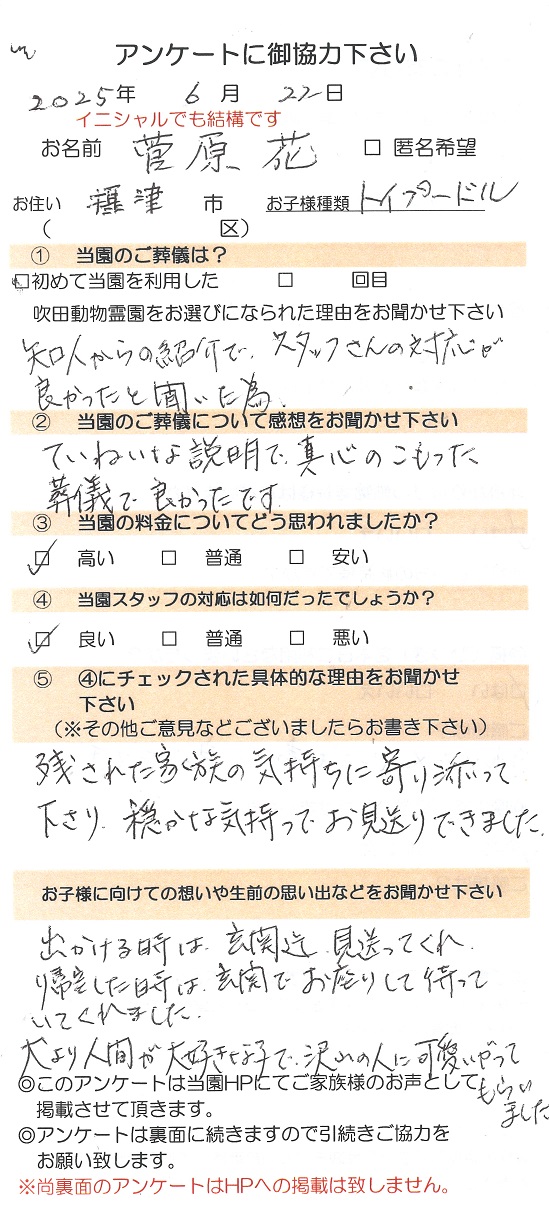 アンケートに御協力下さい
2025年 6月 22日
イニシャルでも結構です
お名前 菅原 花 □ 匿名希望
お住い 摂津 市 お子様種類 トイプードル
( 区)
① 当園のご葬儀は？
□初めて当園を利用した □ 回目
吹田動物霊園をお選びになられた理由をお聞かせ下さい
知人からの紹介で、スタッフさんの対応が
良かったと聞いた為.
② 当園のご葬儀について感想をお聞かせ下さい
ていねいな説明で、真心のこもった
葬儀で良かったです.
③ 当園の料金についてどう思われましたか？
☑ 高い □ 普通 □ 安い
④ 当園スタッフの対応は如何だったでしょうか？
☑ 良い □ 普通 □ 悪い
⑤ ④にチェックされた具体的な理由をお聞かせ
下さい
（※その他ご意見などございましたらお書き下さい）
残された家族の気持ちに寄り添って
下さり、穏かな気持ってお見送りできました.
お子様に向けての想いや生前の思い出などをお聞かせ下さい
出かける時は、玄関迄、見送ってくれ、
帰宅した時は、玄関でお座りして待って
いてくれました.
犬より人間が大好きな子で、沢山の人に可愛いがって
もらい
ました
◎このアンケートは当園HPにてご家族様のお声として
掲載させて頂きます。
◎アンケートは裏面に続きますので引続きご協力を
お願い致します。
※尚裏面のアンケートはHPへの掲載は致しません。